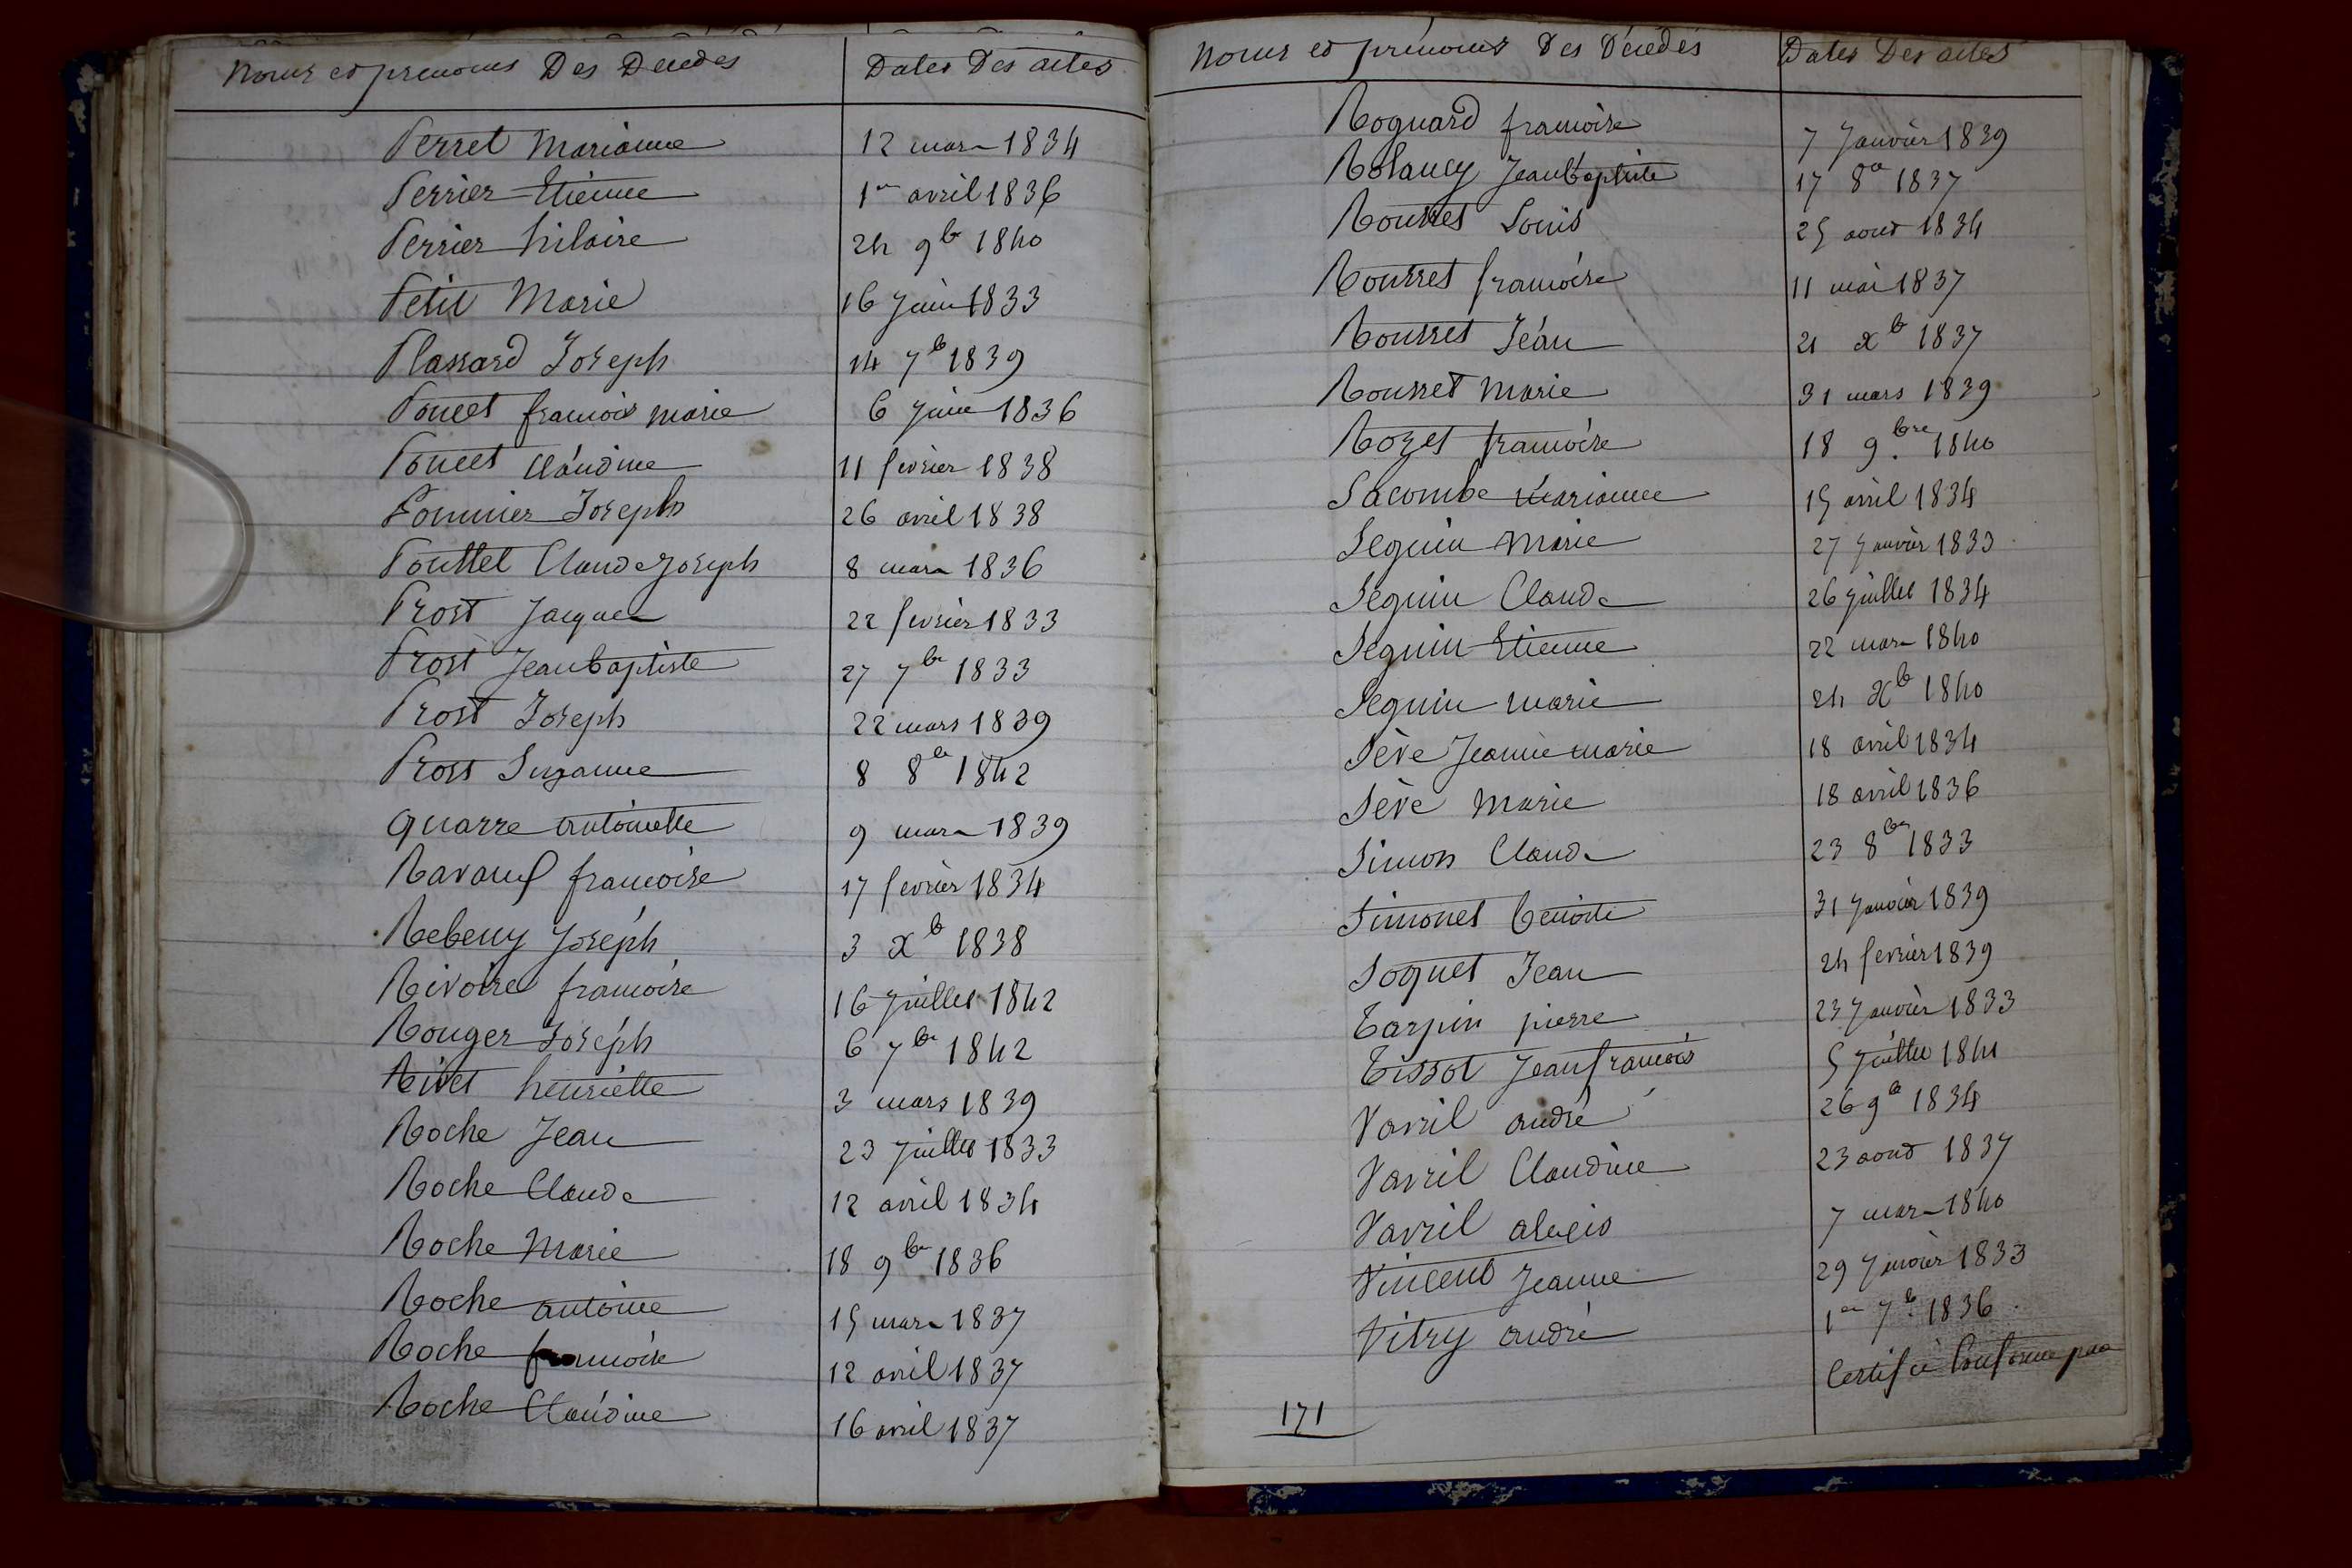 Noms et prenoms Des Decedes
Dates Des actes
Perret Marianne 12 mars 1834
Perrier Etienne 1er avril 1836
Perrier hilaire 24 9b 1840
Petit Marie 16 Juin 1833
Plassard Joseph 14 7b 1839
Poncet francois marie 6 Juin 1836
Poncet Claudine 11 fevrier 1838
Pommier Joseph 26 avril 1838
Pouttet Claude Joseph 8 mars 1836
Prost Jacques 22 fevrier 1833
Prost Jean baptiste 27 7bre 1833
Prost Joseph 22 mars 1839
Prost Suzanne 8 8bre 1842
quarre antoinette 9 mars 1839
francoise 17 fevrier 1834
Rebeny Joseph 3 xb 1838
Rivoire francoise 16 Juillet 1842
Rouger Joseph 6 7bre 1842
Rivet henriette 3 mars 1839
Roche Jean 23 Juillet 1833
Roche Claude 12 avril 1834
Roche Marie 18 9bre 1836
Roche antoine 15 mars 1837
Roche francoise 12 avril 1837
Roche Claudine 16 avril 1837
Noms et prénoms Des Décedés
Dates Des actes
Roguard francoise 7 Janvier 1839
Rolancy Jean baptiste 17 8bre 1837
Rousset Louis 25 aout 1834
Rousset francoise 11 mai 1837
Rousset Jean 21 xb 1837
Rousset Marie 31 mars 1839
Rozet francoise 18 9.bre 1840
Sacombe Marianne 15 avril 1834
Seguin Marie 27 Janvier 1833
Seguin Claude 26 Juillet 1834
Seguin Etienne 22 mars 1840
Seguin marie 24 xb 1840
Sève Jeanne marie 18 avril 1834
Sève Marie 18 avril 1836
Simon Claude 23 8bre 1833
Simonet benoite 31 Janvier 1839
Soquet Jean 24 fevrier 1839
Tarpin pierre 23 Janvier 1833
Tissot Jean francois 5 Juillet 1841
Vavril andré 26 9b 1834
Vavril Claudine 23 aout 1837
Vavril alexis 7 mars 1840
Vincent Jeanne 29 Janvier 1833
Vitry andré 1er 7b. 1836
Certifié Conforme par
171